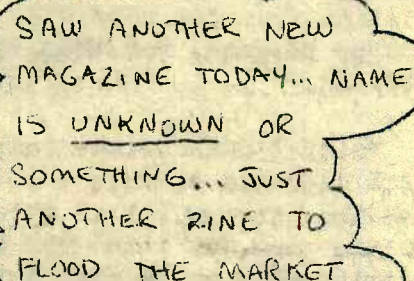 SAW ANOTHER NEW
MAGAZINE TODAY... NAME
IS UNKNOWN OR
SOMETHING... JUST
ANOTHER ZINE TO
FLOOD THE MARKET